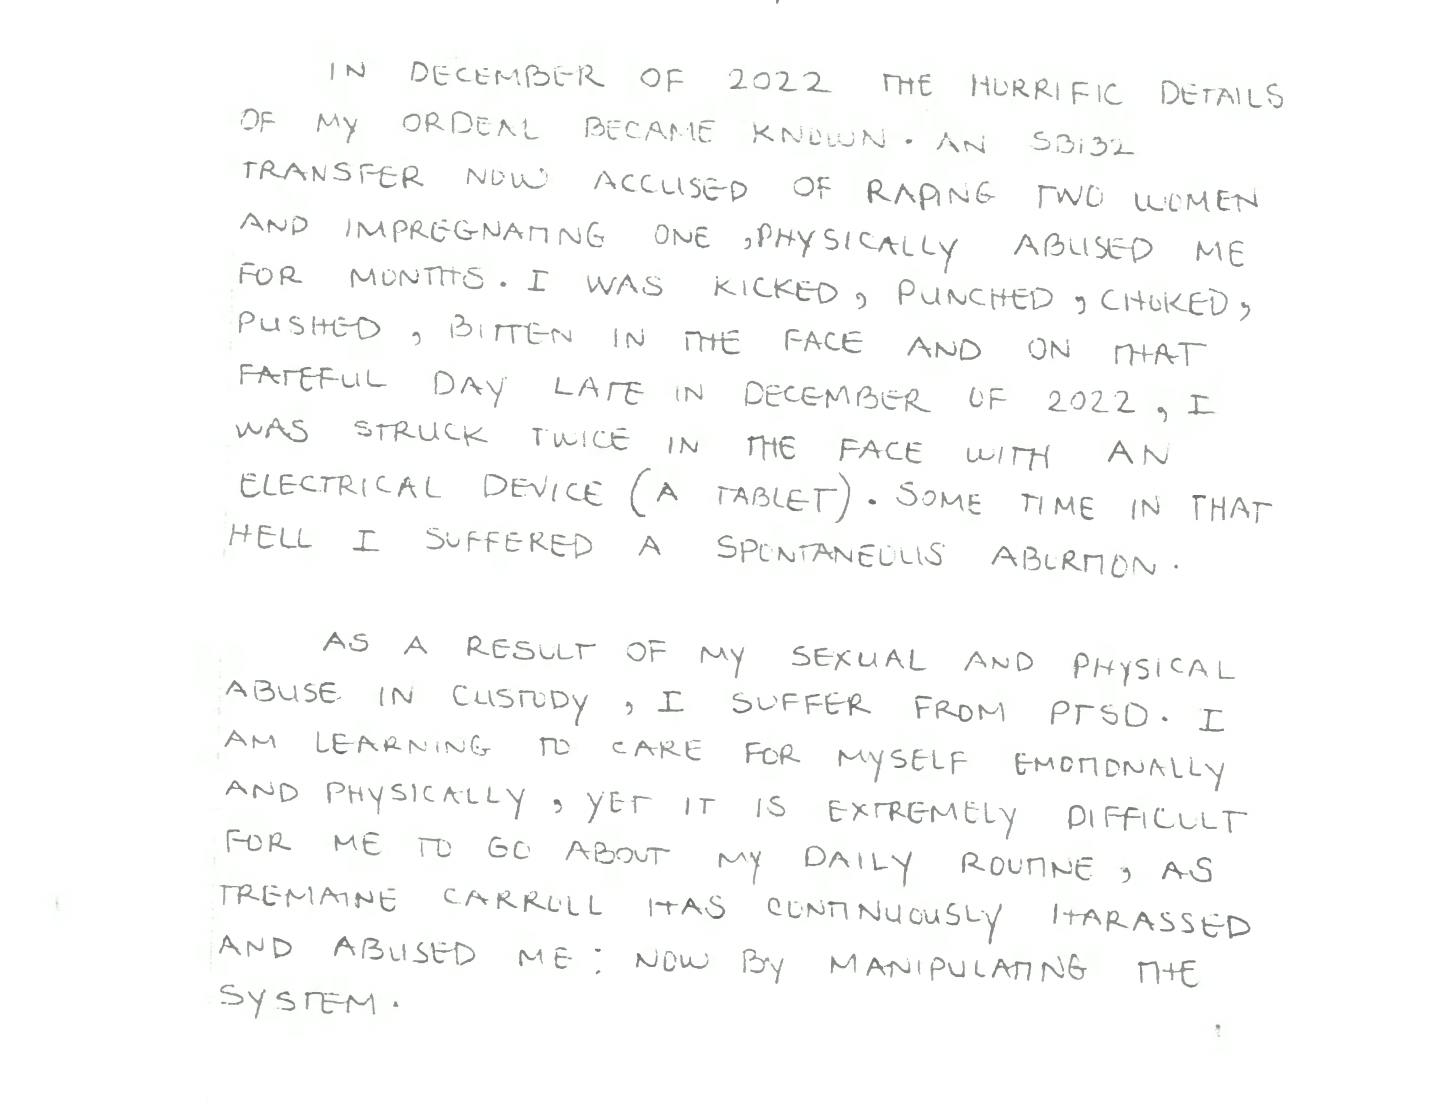 IN DECEMBER OF 2022 THE HORRIFIC DETAILS
OF MY ORDEAL BECAME KNOWN. AN SB132
TRANSFER NOW ACCUSED OF RAPING TWO WOMEN
AND IMPREGNATING ONE, PHYSICALLY ABUSED ME
FOR MONTHS. I WAS KICKED, PUNCHED, CHOKED,
PUSHED, BITTEN IN THE FACE AND ON THAT
FATEFUL DAY LATE IN DECEMBER OF 2022, I
WAS STRUCK TWICE IN THE FACE WITH AN
ELECTRICAL DEVICE (A TABLET). SOME TIME IN THAT
HELL I SUFFERED A SPONTANEOUS ABORTION.
AS A RESULT OF MY SEXUAL AND PHYSICAL
ABUSE IN CUSTODY, I SUFFER FROM PTSD. I
AM LEARNING TO CARE FOR MYSELF EMOTIONALLY
AND PHYSICALLY, YET IT IS EXTREMELY DIFFICULT
FOR ME TO GO ABOUT MY DAILY ROUTINE, AS
TREMAINE CARROLL HAS CONTINUOUSLY HARASSED
AND ABUSED ME: NOW BY MANIPULATING THE
SYSTEM.